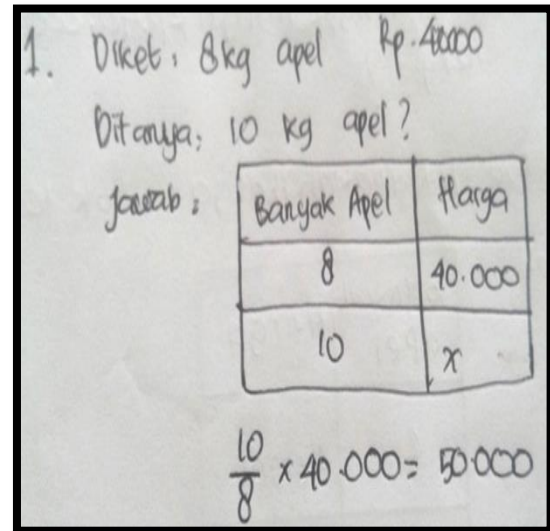 1. Diket : 8kg apel Rp. 40000
Ditanya : 10 kg apel?
Jawab :
Banyak Apel Harga
8 40.000
10 x
10/8 x 40.000 = 50.000